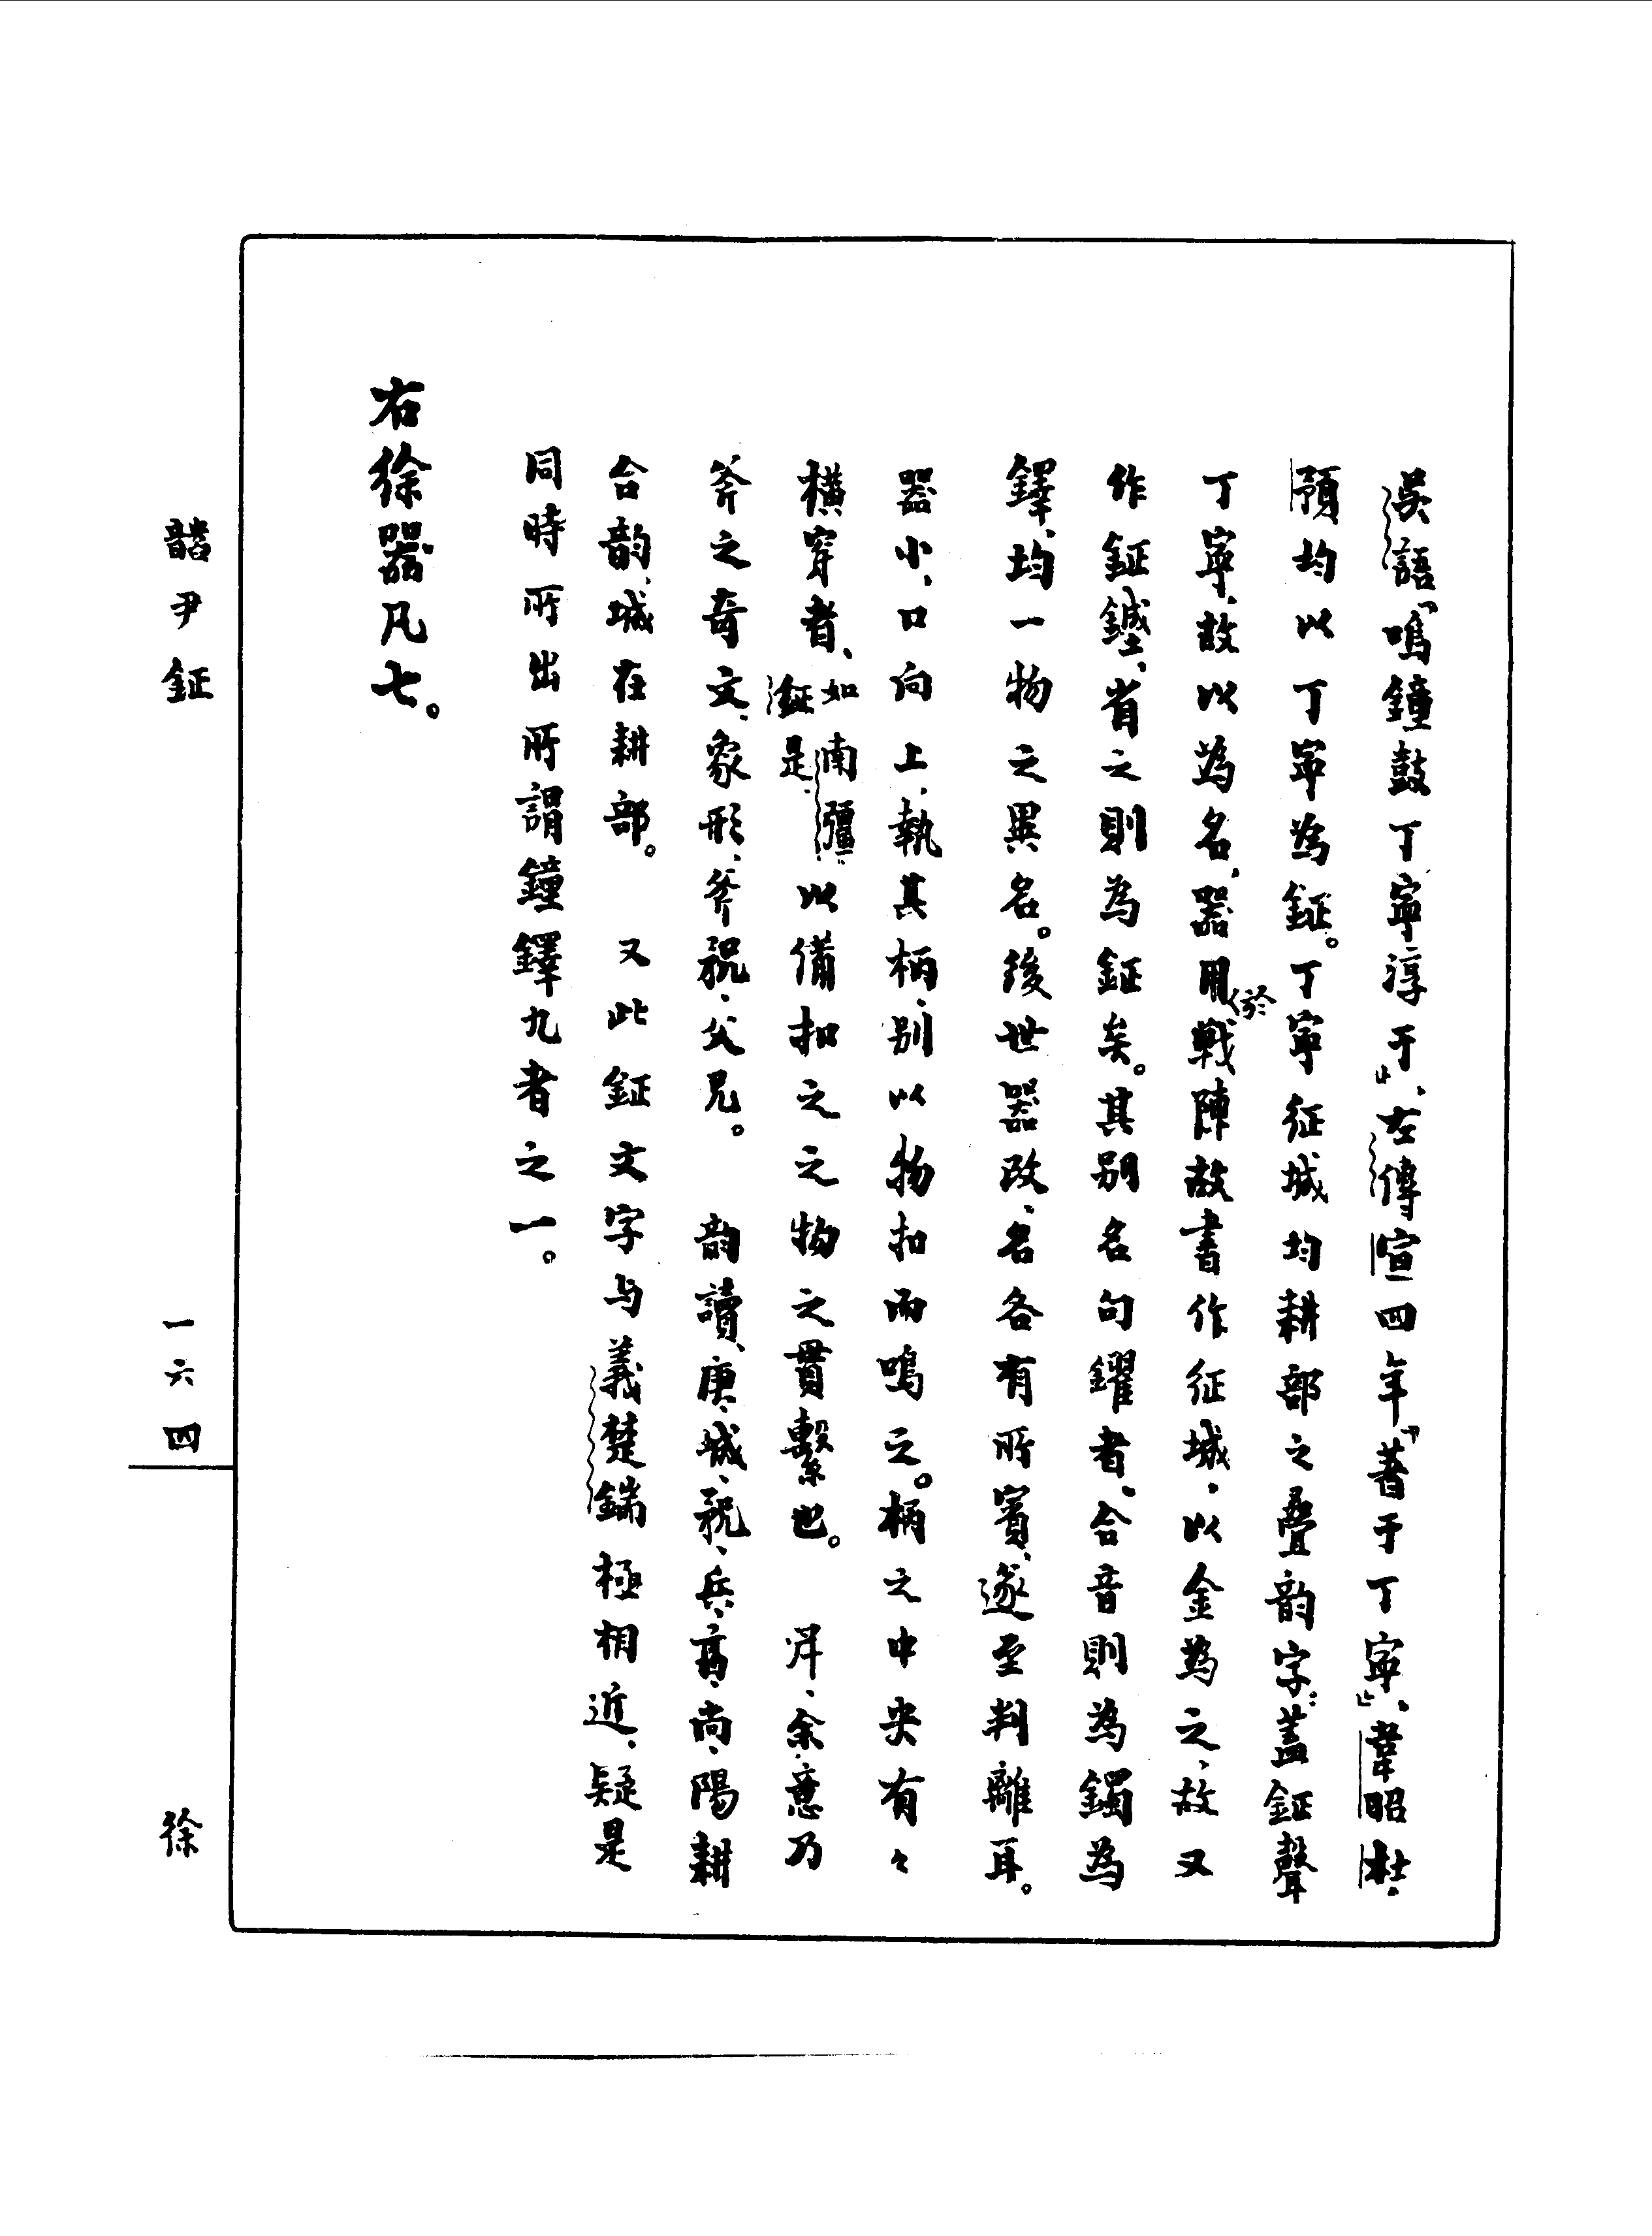 吳語「鳴鐘鼓丁寧淳于」、左傳宣四年「著于丁寧」、韋昭杜、
預均以丁寧為鉦。丁寧征城均耕部之疊韵字：蓋鉦聲
丁寧、故以為名、器用於戰陣故書作征城、以金為之、故又
作鉦鋮、省之則為鉦矣。其別名句鑃者、合音則為鐲為
鐸、均一物之異名。後世器改、名各有所賓、遂至判離耳。
器小、口向上、執其柄、别以物扣而鳴之。柄之中央有々
橫穿者、如南彊鉦是、以備扣之之物之貫繫也。 𦍒、余、意乃
斧之奇文、象形、斧祝、父兄。 韵讀、庚、城、祝、兵、享、尚、陽耕
合韵、城在耕部。 又此鉦文字与義楚鍴極相近、疑是
同時所出所謂鐘鐸九者之一。
右徐器凡七。
尹鉦
一六四
徐